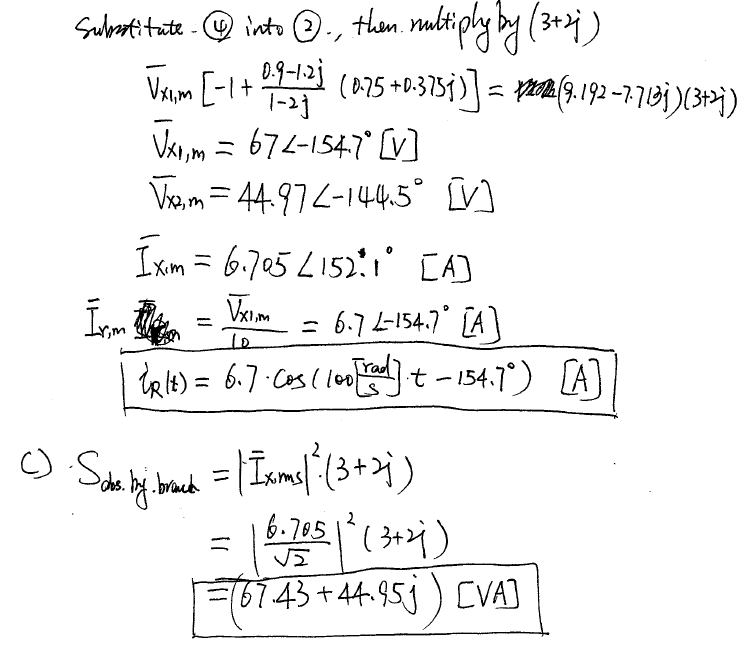 Substitute ④ into ②., then multiply by (3+2j)
V̅x1,m [-1 + 0.9-1.2j / 1-2j (0.75+0.375j)] = (9.192-7.713j)(3+2j)
V̅x1,m = 67∠-154.7° [V]
V̅x2,m = 44.97∠-144.5° [V]
I̅x,m = 6.705∠152.1° [A]
I̅r,m = V̅x1,m / 10 = 6.7∠-154.7° [A]
iR(t) = 6.7·cos(100[rad/s]·t - 154.7°) [A]
C) Sabs.by.branch = |I̅x,rms|²·(3+2j)
= |6.705/√2|²(3+2j)
= (67.43+44.95j) [VA]